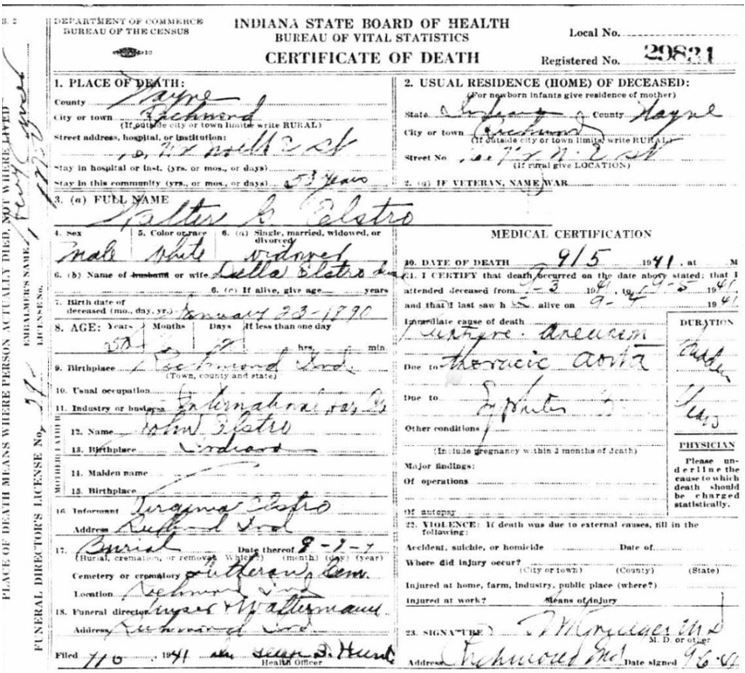 DEPARTMENT OF COMMERCE
BUREAU OF THE CENSUS
INDIANA STATE BOARD OF HEALTH
BUREAU OF VITAL STATISTICS
CERTIFICATE OF DEATH
Local No.
Registered No. 29831
1. PLACE OF DEATH:
County Wayne
City or town Richmond
(If outside city or town limits write RURAL)
Street address, hospital, or institution:
St
Stay in hospital or inst. (yrs. or mos., or days)
Stay in this community (yrs. or mos., or days) 53 years
2. USUAL RESIDENCE (HOME) OF DECEASED:
(For newborn infants give residence of mother)
State Indiana County Wayne
City or town Richmond
(If outside city or town limits write RURAL)
Street No. St
(If rural give LOCATION)
2. (a) IF VETERAN, NAME WAR
3. (a) FULL NAME Walter Elstro
4. Sex 5. Color or race 6. (a) Single, married, widowed, or divorced
Male White widowed
6. (b) Name of husband or wife Luella Elstro
6. (c) If alive, give age years
7. Birth date of
deceased (mo., day, yr.) January 23-1890
8. AGE: Years Months Days If less than one day
hrs. min.
9. Birthplace Richmond Ind.
(Town, county and state)
10. Usual occupation
11. Industry or business International
FATHER
12. Name John Elstro
13. Birthplace Indiana
MOTHER
14. Maiden name
15. Birthplace
16. Informant Virginia Elstro
Address Richmond Ind
17. Burial Date thereof 9-7-
(Burial, cremation, or removal. Which?) (month) (day) (year)
Cemetery or crematory Lutheran Cem.
Location Richmond Ind
18. Funeral director & Waltermann
Address Richmond Ind.
Filed 1941 Hunt
Health Officer
MEDICAL CERTIFICATION
20. DATE OF DEATH 9/5 1941, at M
21. I CERTIFY that death occurred on the date above stated; that I
attended deceased from 9-3 1941, to 9-5 1941
and that I last saw h alive on 9-4 1941
Immediate cause of death
Rupture aneurism
Due to thoracic aorta
Due to Syphilis
Other conditions
(Include pregnancy within 3 months of death)
Major findings:
Of operations
Of autopsy
DURATION
Sudden
Years
PHYSICIAN
Please underline the
cause to which
death should
be charged
statistically.
22. VIOLENCE: If death was due to external causes, fill in the
following:
Accident, suicide, or homicide Date of
Where did injury occur?
(City or town) (County) (State)
Injured at home, farm, industry, public place (where?)
Injured at work? Means of injury
23. SIGNATURE M D
M. D. or other
Address Richmond Ind Date signed 9-6-41
PLACE OF DEATH MEANS WHERE PERSON ACTUALLY DIED, NOT WHERE LIVED
EMBALMER'S NAME
LICENSE No.
FUNERAL DIRECTOR'S LICENSE No.